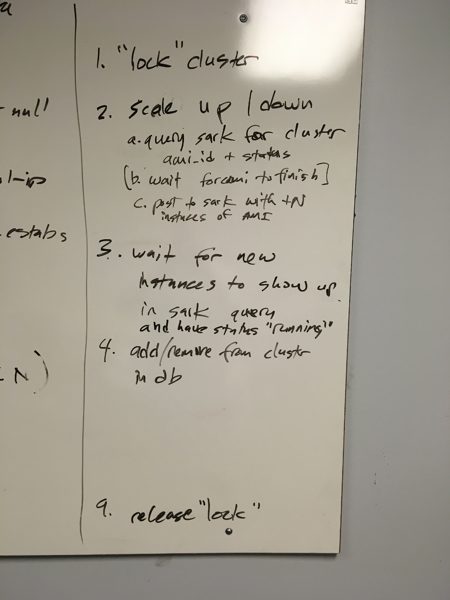 null'
l-ip
estabs
N)
1. "lock" cluster
2. scale up / down
a. query sark for cluster
ami_id + status
[b. wait for ami to finish]
c. post to sark with +N
instances of AMI
3. wait for new
instances to show up
in sark query
and have status "running"
4. add/remove from cluster
in db
9. release "lock"